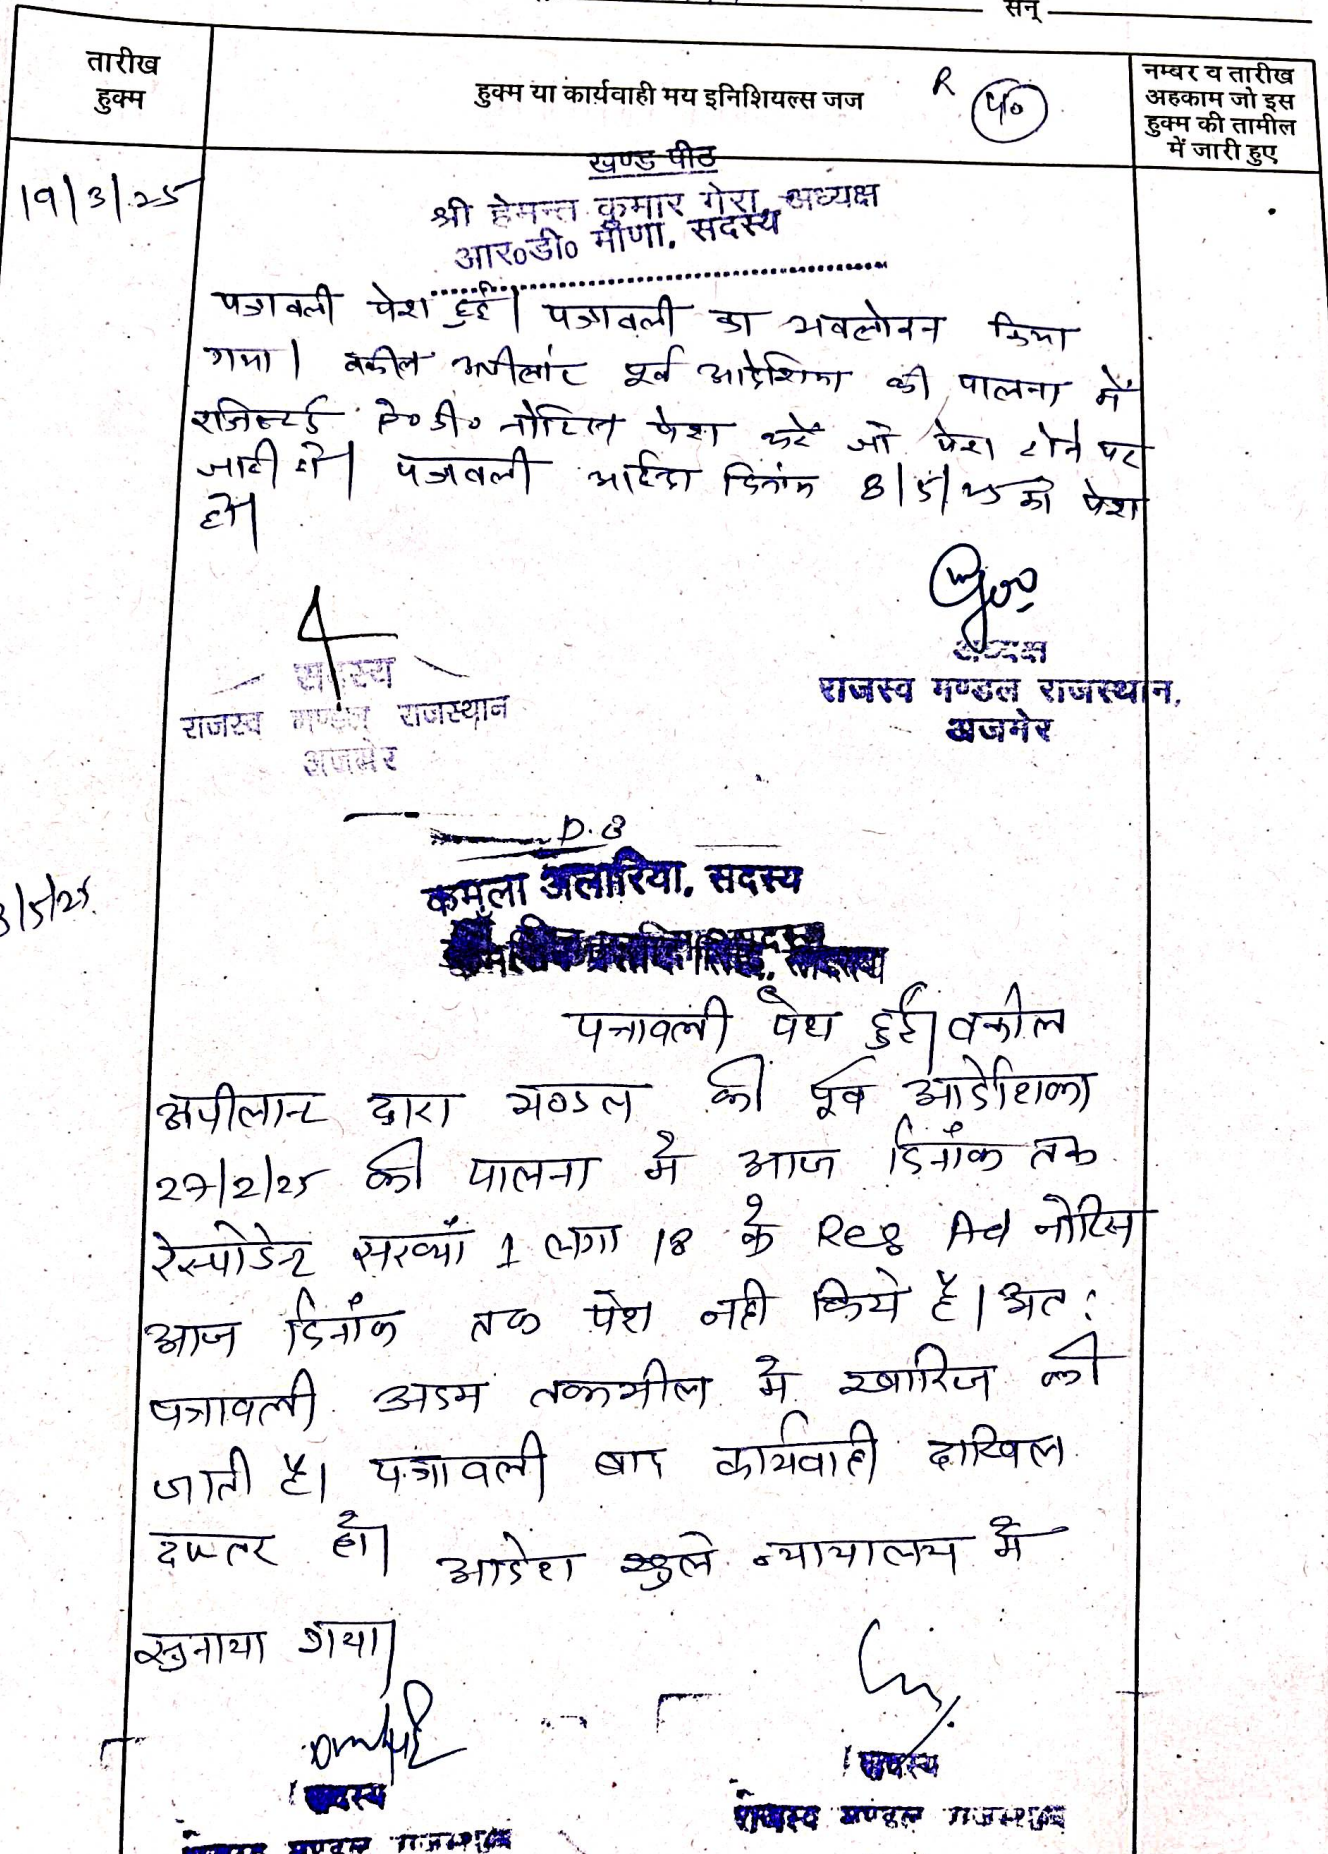 सन्
तारीख
हुक्म
हुक्म या कार्यवाही मय इनिशियल्स जज
R
नम्बर व तारीख
अहकाम जो इस
हुक्म की तामील
में जारी हुए
खण्ड पीठ
19/3/25
श्री हेमन्त कुमार गेरा, अध्यक्ष
आर०डी० मीणा, सदस्य
पत्रावली पेश हुई। पत्रावली का अवलोकन किया
गया। वकील अपीलांट पूर्व आदेशिका की पालना में
रजिस्टर्ड ए०डी० नोटिस पेश करें जो पेश होने पर
जारी हो। पत्रावली आईन्दा दिनांक 8/5/25 को पेश
हो।
अध्यक्ष
सदस्य
राजस्व मण्डल राजस्थान,
राजस्व मण्डल राजस्थान
अजमेर
अजमेर
D.B
8/5/25
कमला अलारिया, सदस्य
पत्रावली पेश हुई। वकील
अपीलान्ट द्वारा मण्डल की पूर्व आदेशिका
27/2/25 की पालना में आज दिनांक तक
रेस्पोडेन्ट सख्यां 1 लगा 18 के Reg Ad नोटिस
आज दिनांक तक पेश नही किये है। अत:
पत्रावली अदम तकमील में खारिज की
जाती है। पत्रावली बाद कार्यवाही दाखिल
दफ्तर हो। आदेश खुले न्यायालय में
सुनाया गया।
सदस्य
सदस्य
राजस्व मण्डल राजस्थान
राजस्व मण्डल राजस्थान